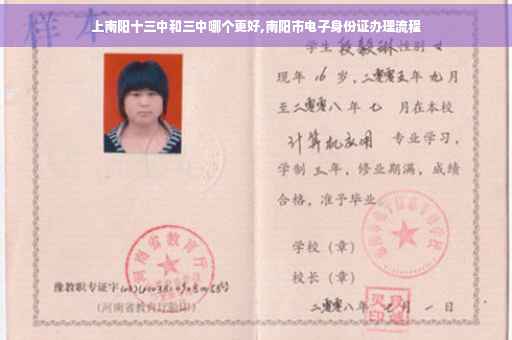 上南阳十三中和三中哪个更好,南阳市电子身份证办理流程
样本
学生段毅琳性别女
现年16岁,二零零五年九月
至二零零八年七月在本校
计算机应用 专业学习,
学制三年,修业期满,成绩
合格,准予毕业
学校(章)
校长(章)
二零零八年七月一日
河南省教育厅
豫教职专证字
(河南省教育厅验印)